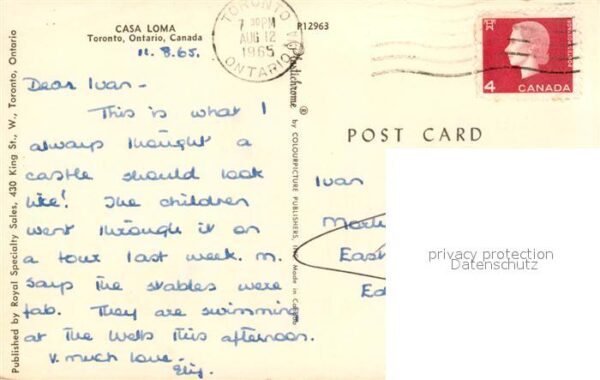 CASA LOMA
Toronto, Ontario, Canada
11.8.65.
Dear Ivan -
This is what I
always thought a
castle should look
like! The children
went through it on
a tour last week. M.
says the stables were
fab. They are swimming
at the Webbs this afternoon.
V. much love -
Published by Royal Specialty Sales, 430 King St., W., Toronto, Ontario
P12963
Plastichrome® by COLOURPICTURE PUBLISHERS, INC. Made in Canada
TORONTO
7 30 PM
AUG 12
1965
ONTARIO
4
CANADA
POST CARD
Ivan
East
Ed
privacy protection
Datenschutz